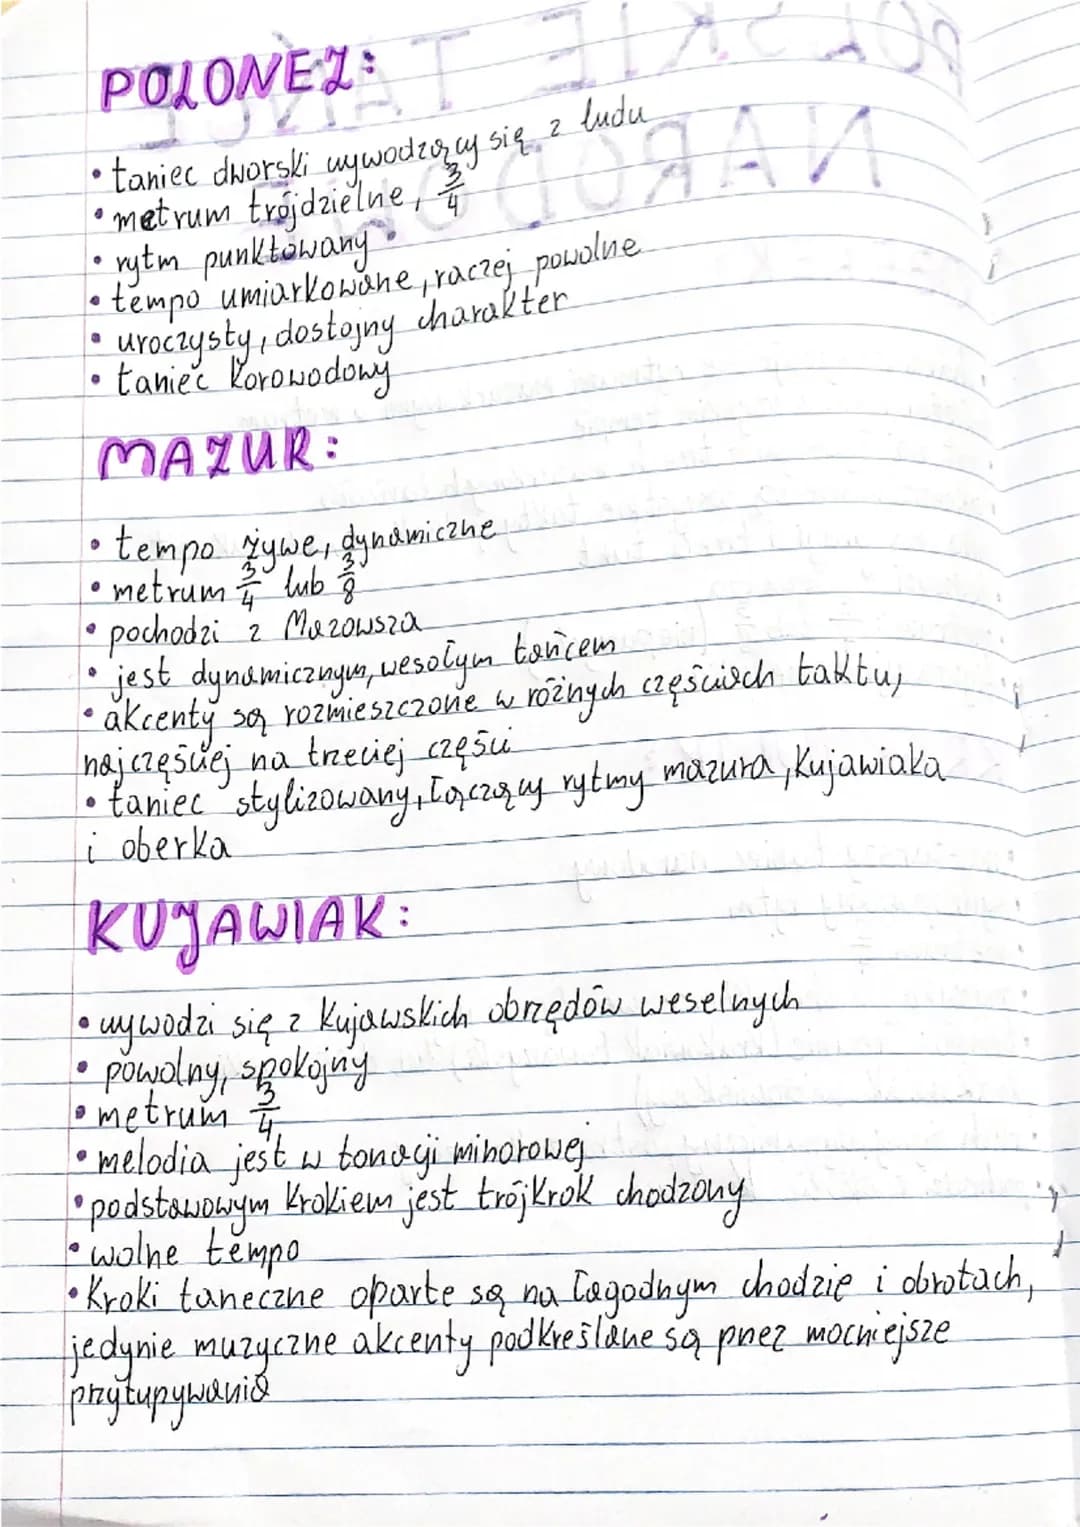 POLONEZ:
• taniec dworski wywodzący się z ludu
• metrum trójdzielne, 3/4
• rytm punktowany
• tempo umiarkowane, raczej powolne
• uroczysty, dostojny charakter
• taniec korowodowy
MAZUR:
• tempo żywe, dynamiczne
• metrum 3/4 lub 3/8
• pochodzi z Mazowsza
• jest dynamicznym, wesołym tańcem
• akcenty są rozmieszczone w różnych częściach taktu,
najczęściej na trzeciej części
• taniec stylizowany, łączący rytmy mazura, kujawiaka
i oberka
KUJAWIAK:
• wywodzi się z kujawskich obrzędów weselnych
• powolny, spokojny
• metrum 3/4
• melodia jest w tonacji minorowej
• podstawowym krokiem jest trójkrok chodzony
• wolne tempo
• Kroki taneczne oparte są na łagodnym chodzie i obrotach,
jedynie muzyczne akcenty podkreślane są przez mocniejsze
przytupywania